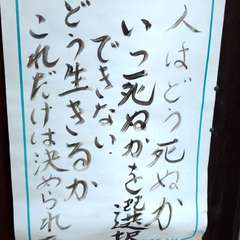 人はどう死ぬか
いつ死ぬかを選択
できない
どう生きるか
これだけは決められ